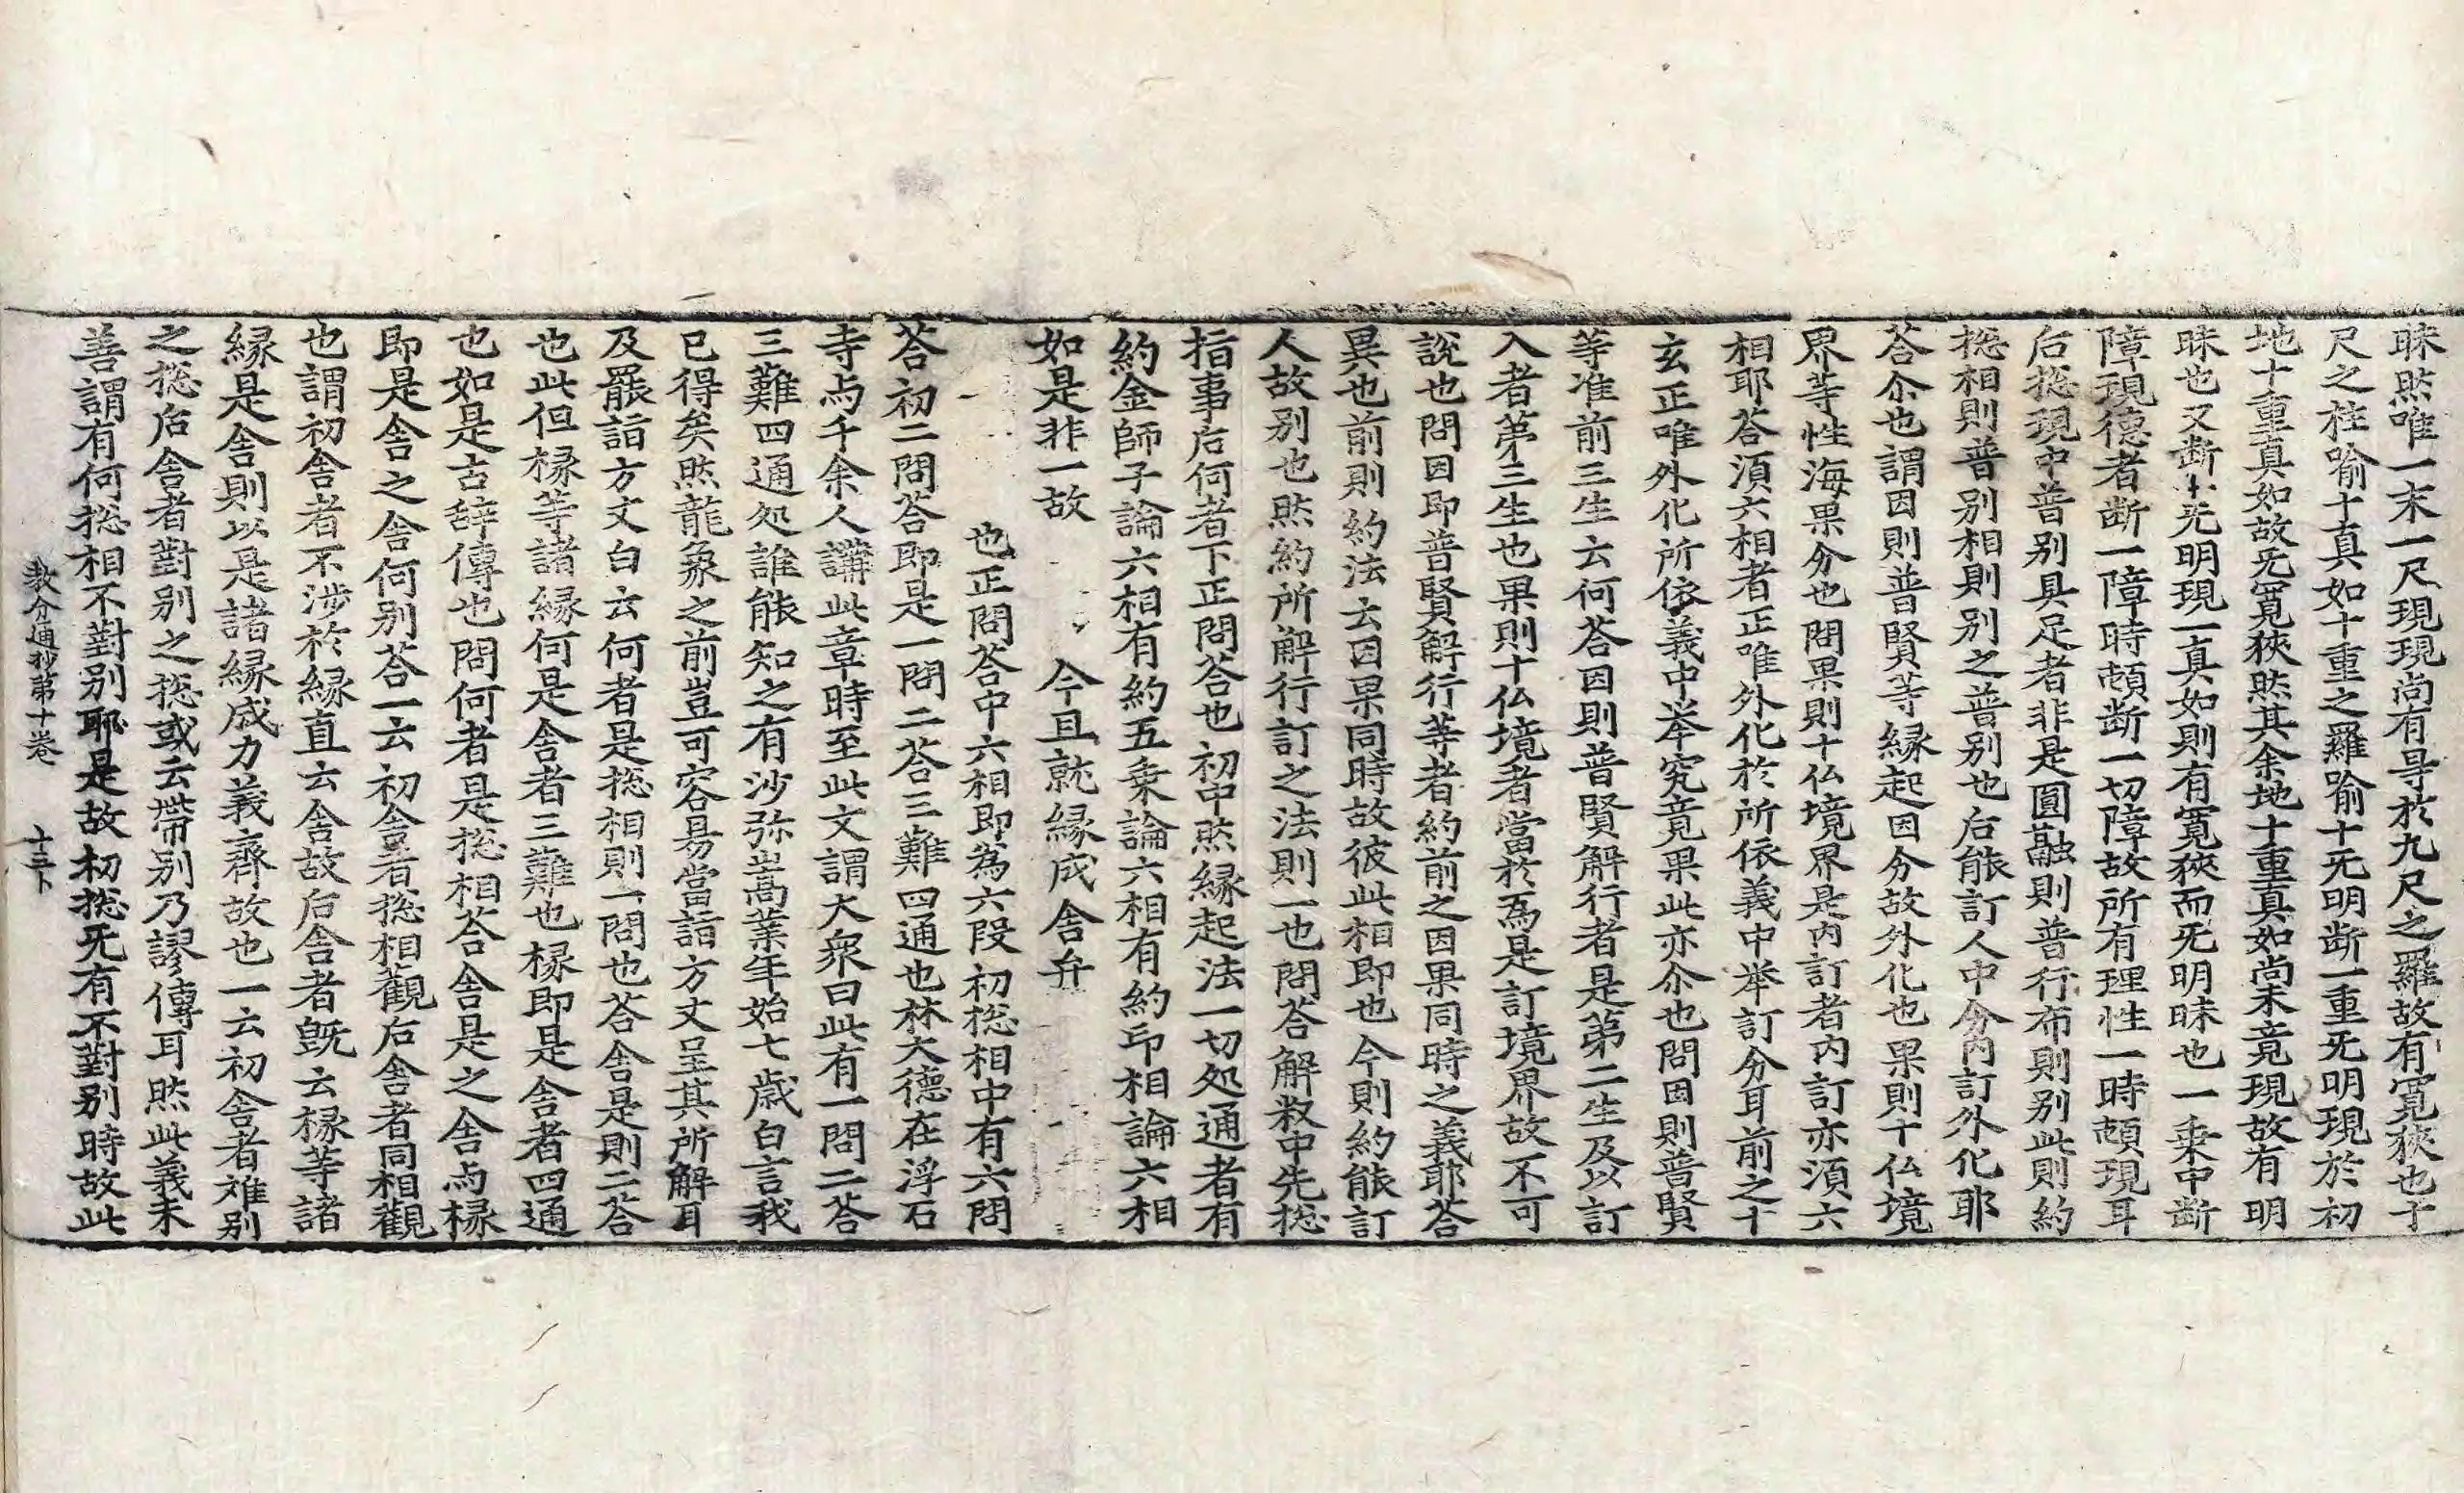 昧㷊唯一末一尺現現尚有㝵於九尺之羅故有寬狹也于
尺之柱喻十真如十重之羅喻十旡明断一重旡明現於初
地十重真如故旡寬狹㷊其余地十重真如尚未竟現故有明
昧也又断十旡明現一真如則有寬狹而旡明昧也一乘中断
障現德者断一障時頓断一切障故所有理性一時頓現耳
后捴現中普别具足者非是圓融則普行布則别此則約
捴相則普别相則别之普别也后能訂人中分內訂外化耶
荅尒也謂因則普賢等縁起因分故外化也果則十仏境
界等性海果分也問果則十仏境界是內訂者內訂亦湏六
相耶荅湏六相者正唯外化於所依義中举訂分耳前之十
玄正唯外化所依義中举究竟果此亦尒也問因則普賢
等准前三生云何荅因則普賢解行者是第二生及以訂
入者第三生也果則十仏境者當於爲是訂境界故不可
說也問因即普賢解行等者約前之因果同時之義耶荅
異也前則約法云因果同時故彼此相即也今則約能訂
人故别也㷊約所解行訂之法則一也問荅解釈中先捴
指事后何者下正問荅也初中㷊縁起法一切処通者有
約金師子論六相有約五乘論六相有約印相論六相
如是非一故今且就縁成舍弁
也正問荅中六相即為六段初捴相中有六問
荅初二問荅即是一問二荅三難四通也林大德在浮石
寺与千余人講此章時至此文謂大衆曰此有一問二荅
三難四通処誰能知之有沙弥嵩業年始七歳白言我
已得矣㷊龍象之前豈可容易當詣方丈呈其所解耳
及罷詣方丈白云何者是捴相則一問也荅舍是則二荅
也此但椽等諸縁何是舍者三難也椽即是舍者四通
也如是古辞傳也問何者是捴相荅舍是之舍与椽
即是舍之舍何别荅一云初舍者捴相觀后舍者同相觀
也謂初舍者不涉於縁直云舍故后舍者旣云椽等諸
縁是舍則以是諸縁成力義齊故也一云初舍者难别
之捴后舍者對别之捴或云帶别乃謬傳耳㷊此義未
善謂有何捴相不對别耶是故初捴旡有不對别時故此
教分通抄第十卷　十三卜